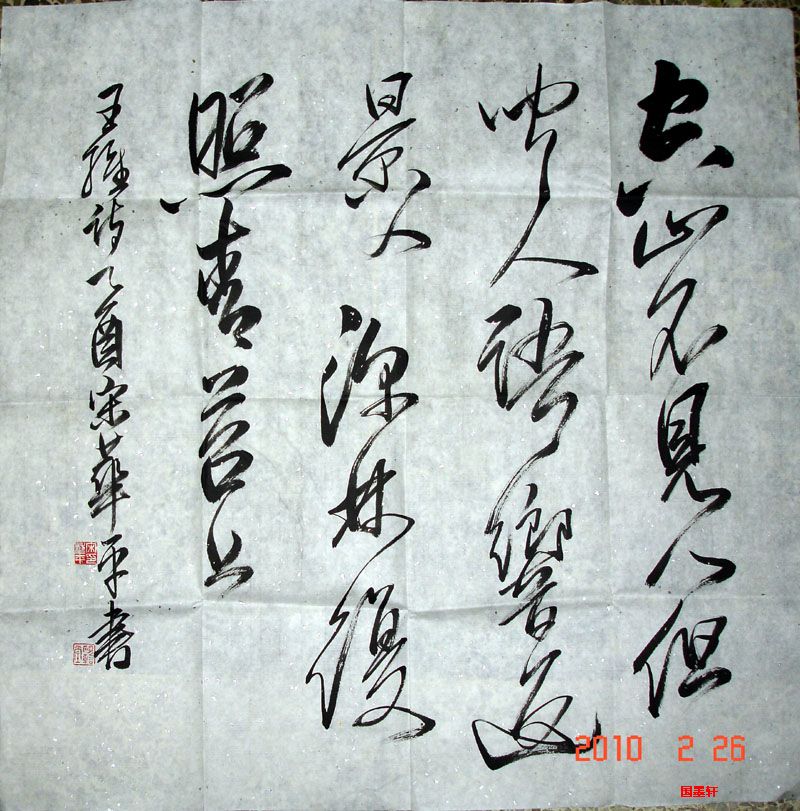 空山不見人但
聞人語響返
景入深林復
照青苔上
王維诗乙酉宋華平書
2010 2 26
国墨轩